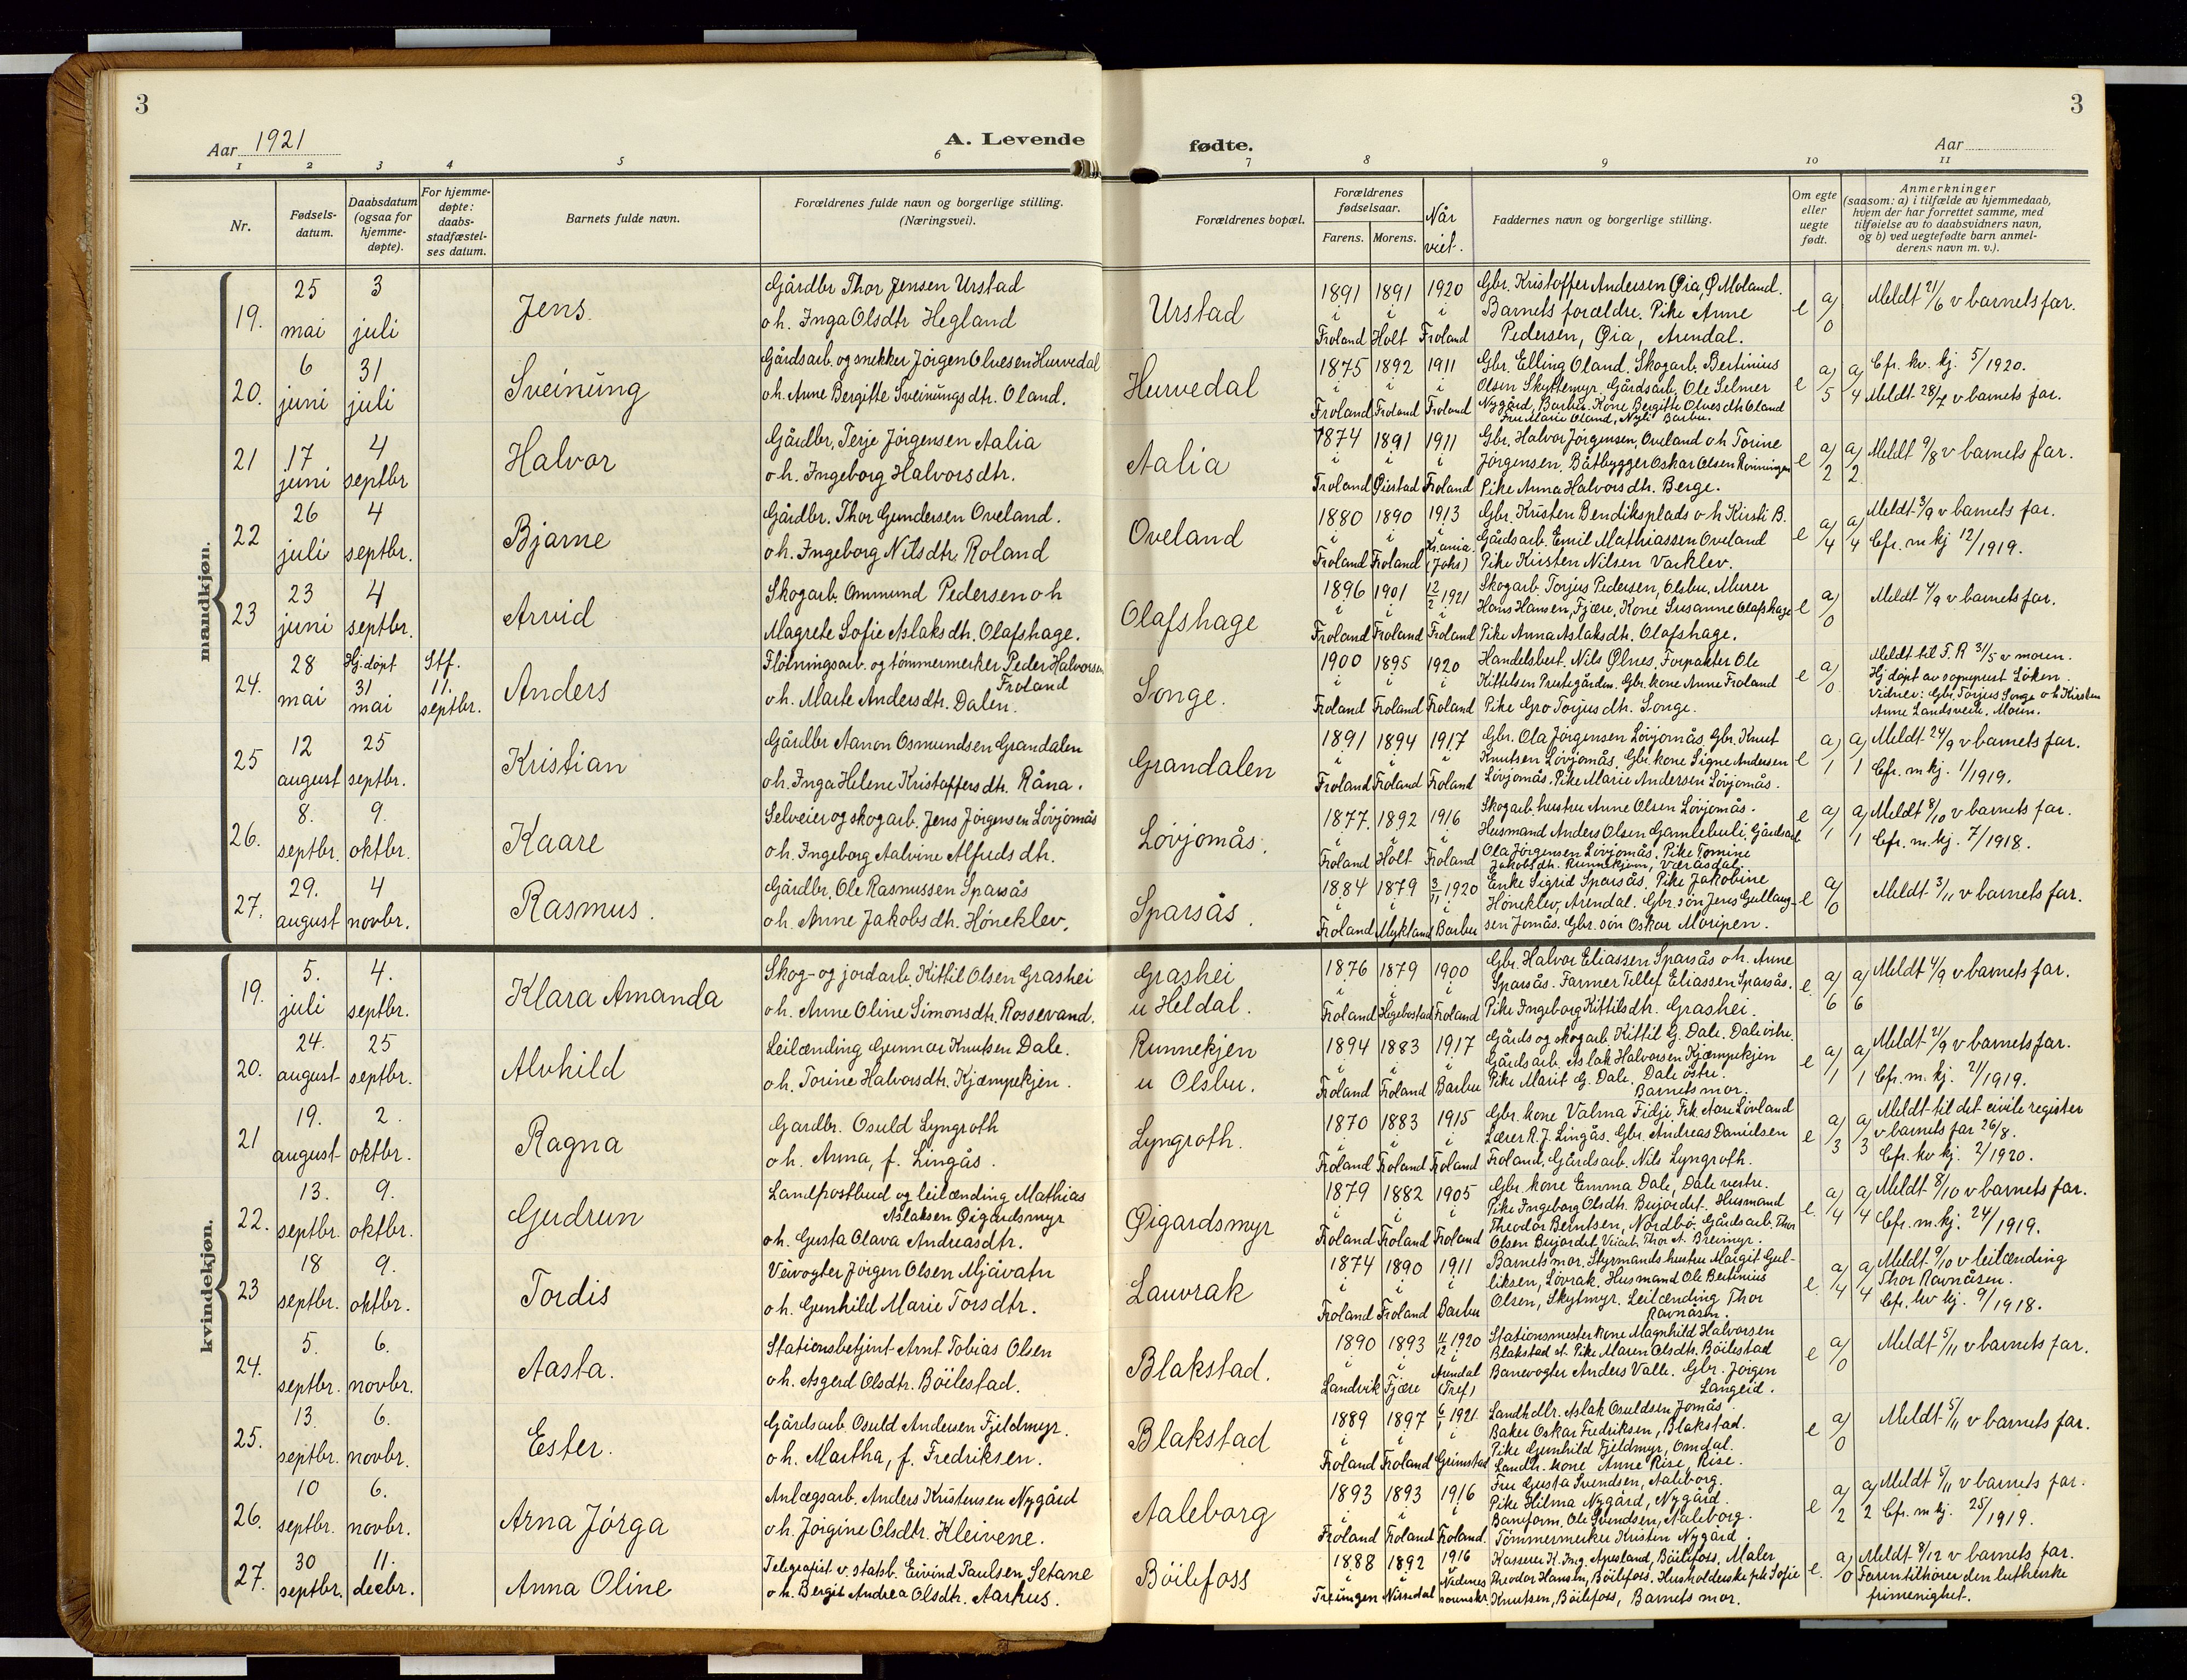 3
3
Aar 1921
A. Levende
fødte.
Aar
1 2 3 4 5 6 7 8 9 10 11
Nr.
Fødsels-
datum.
Daabsdatum
(ogsaa for
hjemme-
døpte).
For hjemme-
døpte:
daabs-
stadfæstel-
ses datum.
Barnets fulde navn.
Forældrenes fulde navn og borgerlige stilling.
(Næringsvei).
Forældrenes bopæl.
Forældrenes
fødselsaar.
Farens. Morens.
Når
viet.
Faddernes navn og borgerlige stilling.
Om egte
eller
uegte
født.
Anmerkninger
(saasom: a) i tilfælde av hjemmedaab,
hvem der har forrettet samme, med
tilføielse av to daabsvidners navn,
og b) ved uegtefødte barn anmel-
derens navn m. v.).
mandkjøn.
19.
25
mai
3
juli
Jens.
Gårdbr Thor Jensen Urstad
o h. Inga Olsdtr Hegland
Urstad
1891 1891 1920
i i i
Froland Holt Froland
Gbr. Kristoffer Andersen Øia, Ø Moland.
Barnets forældre. Pike Anne
Pedersen, Øia, Arendal.
e a/0
Meldt 21/6 v barnets far.
20.
6
juni
31
juli
Sveinung
Gårdsarb. og snekker Jörgen Olvesen Hurvedal
o h. Anne Bergitte Sveinungsdtr. Oland.
Hurvedal
1875 1892 1911
i i i
Froland Froland Froland
Gbr. Elling Oland. Skogarb. Bertinius
Olsen Skytemyr. Gårdsarb. Ole Selmer
Nygård, Barbu. Kone Bergitte Olvesdtr Oland
Fru Marie Oland, Nyli Barbu.
e a/5 a/4
Cfr. kv. kj. 5/1920.
Meldt 28/7 v barnets far.
21
17
juni
4
septbr
Halvor
Gårdbr. Terje Jörgensen Aalia
o h. Ingeborg Halvorsdtr.
Aalia
1874 1891 1911
i i i
Froland Øiestad Froland
Gbr. Halvor Jörgensen, Oveland o h Torine
Jörgensen. Båtbygger Oskar Olsen Rönningen
Pike Anna Halvorsdtr. Berge.
e a/2 a/2
Meldt 9/8 v barnets far.
22
26
juli
4
septbr.
Bjarne
Gårdbr. Thor Gundersen Oveland.
o h. Ingeborg Nilsdtr. Roland
Oveland
1880 1890 1913
i i i
Froland Froland Kr.ania (Johs)
Gbr. Kristen Bendiksplads o h Kirsti B.
Gårdsarb. Emil Mathiassen Oveland
Pike Kirsten Nilsen Varklev.
e a/4 a/4
Meldt 3/9 v barnets far.
Cfr. m kj 12/1919.
23
23
juni
4
septbr.
Arvid
Skogarb. Ommund Pedersen o h
Magrete Sofie Aslaksdtr. Olafshage.
Olafshage
1896 1901 12/2 1921
i i i
Froland Froland Froland
Skogarb. Torjus Pedersen, Olsbu, Murer
Hans Hansen, Fjære, Kone Susanne Olafshage
Pike Anna Aslaksdtr. Olafshage.
e a/0
Meldt 4/9 v barnets far.
24.
28
mai
Hj. döpt
31
mai
Stf.
11.
septbr.
Anders
Flötningsarb. og tömmermerker Peder Halvorsen
Froland
o h. Marte Andersdtr. Dalen.
Songe.
1900 1895 1920
i i i
Froland Froland Froland
Handelsbest. Nils Ølnes, Forpakter Ole
Kittelsen Prestegården. Gbr. kone Anne Froland
Pike Gro Torjusdtr. Songe.
e a/0
Meldt til F. R 31/5 v moren.
Hj döpt av sogneprest Löken.
Vidner: Gbr. Torjus Songe o h Kirsten
Anne Landsverk, Moren.
25
12
august
25
septbr.
Kristian
Gårdbr Aanon Osmundsen Grandalen
o h. Inga Helene Kristoffersdtr. Råna.
Grandalen
1891 1894 1917
i i i
Froland Froland Froland
Gbr. Ola Jörgensen Lövjomås, Gbr. Knut
Knutsen Lövjomås. Gbr. kone Signe Andersen
Lövjomås. Pike Marie Andersen Lövjomås.
e a/1 a/1
Meldt 24/9 v barnets far.
Cfr. m kj. 1/1919.
26.
8.
septbr.
9.
oktbr.
Kaare
Selveier og skogarb. Jens Jörgensen Lövjomås
o h. Ingeborg Aalvine Alfredsdtr.
Lövjomås.
1877. 1892 1916
i i i
Froland Holt Froland
Skogarb. hustru Anne Olsen Lövjomås.
Husmand Anders Olsen Gamlebuli, Gårdsarb
Ola Jörgensen Lövjomås. Pike Tomine
Jakobsdtr. Runnekjenn, Veråsdal.
e a/1 a/1
Meldt 8/10 v barnets far
Cfr. m. kj. 7/1918.
27.
29.
august
4
novbr.
Rasmus.
Gårdbr. Ole Rasmussen Sparsås
o h. Anne Jakobsdtr. Höneklev.
Sparsås.
1884 1879 3/11 1920
i i i
Froland Mykland Barbu
Enke Sigrid Sparsås. Pike Jakobine
Höneklev, Arendal. Gbr. sön Jens Gullaug-
sen Jomås. Gbr. sön Oskar Moripen.
e a/0
Meldt 3/11 v barnets far.
kvindekjøn.
19.
5.
juli
4.
septbr.
Klara Amanda
Skog- og jordarb. Kittil Olsen Grashei
o h. Anne Oline Simonsdtr. Rossevand.
Grashei
u Heldal.
1876 1879 1900
i i
Froland Hegebostad Froland
Gbr. Halvor Eliassen Sparsås o h. Anne
Sparsås. Farmer Tellef Eliassen Sparsås.
Pike Ingeborg Kittilsdtr. Grashei.
e. a/6 a/6
Meldt 4/9 v barnets far.
20.
24.
august
25
septbr.
Alvhild
Leilænding Gunnar Knutsen Dale.
o h. Torine Halvorsdtr. Kjæmpekjen.
Runnekjen
u Olsbu.
1894 1883 1917
i i i
Froland Froland Barbu
Gårds og skogarb Kittil G. Dale. Dale vstre.
Gårdsarb. Aslak Halvorsen Kjæmpekjen
Pike Marit G. Dale. Dale östre.
Barnets mor.
e a/1 a/1
Meldt 21/9 v barnets far.
Cfr. m. kj. 21/1919.
21
19.
august
2.
oktbr.
Ragna
Gardbr. Osuld Lyngroth
o h. Anna, f. Lingås.
Lyngroth.
1870 1883 1915
i i i
Froland Froland Froland
Gbr. kone Valma Fidje. Frk. Aase Lövland
Lærer R. J. Lingås. Gbr. Andreas Danielsen
Froland, Gårdsarb. Nils Lyngroth.
e a/3 a/3
Meldt til det civile register
v barnets far 26/8.
Cfr. kv kj. 2/1920.
22.
13.
septbr.
9.
oktbr.
Gudrun
Landpostbud og leilænding Mathias
Aslaksen Øigardsmyr
o h. Gusta Olava Andreasdtr.
Øigardsmyr
1879 1882 1905
i i i
Froland Froland Froland
Gbr. kone Emma Dale, Dale vestre.
Pike Ingeborg Olsdtr. Bujordet. Husmand
Theodor Berntsen, Nordbö. Gårdsarb. Thor
Olsen Bujordet, Veiarb. Thor A. Breimyr.
e. a/4 a/4
Meldt 8/10 v barnets far.
Cfr. m. kj. 24/1919.
23
18
septbr.
9.
oktbr.
Tordis
Veivogter Jörgen Olsen Mjåvatn
o h. Gunhild Marie Torsdtr.
Lauvrak
1874 1890 1911
i i i
Froland Froland Barbu
Barnets mor. Styrmands hustru Margit Gul-
liksen, Lövrak. Husmand Ole Bertinius
Olsen, Skytmyr. Leilænding Thor
Ravnåsen.
e. a/4 a/4
Meldt 9/10 v leilænding
Thor Ravnåsen.
Cfr. kv kj. 9/1918.
24.
5.
septbr.
6.
novbr.
Aasta.
Stationsbetjent Arnt Tobias Olsen
o h. Asgerd Olsdtr. Böilestad.
Blakstad.
1890 1893 4/12 1920
i i i
Landvik Fjære Arendal (Tref)
Stationsmesterkone Magnhild Halvorsen
Blakstad st. Pike Maren Olsdtr. Böilestad
Banevogter Anders Valle. Gbr. Jörgen
Langeid.
e a/0
Meldt 5/11 v barnets far.
25.
13.
septbr.
6.
novbr.
Ester.
Gårdsarb. Osuld Andersen Fjeldmyr.
o h. Martha, f. Fredriksen.
Blakstad
1889 1897 6/1 1921
i i i
Froland Froland Grimstad
Landhdlr. Aslak Osuldsen Jomås.
Baker Oskar Fredriksen, Blakstad.
Pike Gunhild Fjeldmyr, Omdal.
Landh. kone Anne Rise, Rise.
e a/0
Meldt 5/11 v barnets far.
26.
10
septbr.
6.
novbr.
Arna Jörga
Anlægsarb. Anders Kristensen Nygård
o h. Jörgine Olsdtr. Kleivene.
Aaleborg
1893 1893 1916
i i i
Froland Froland Froland.
Fru Gusta Svendsen, Aaleborg.
Pike Hilma Nygård, Nygård.
Baneform. Ole Svendsen, Aaleborg.
Tömmermerker Kristen Nygård.
e a/2 a/2
Meldt 5/11 v barnets far.
Cfr. m kj. 25/1919.
27.
30
septbr.
11.
decbr.
Anna Oline
Telegrafist v. statsb. Eivind Paulsen Setane
o h. Bergit Andrea Olsdtr. Aarhus.
Böilefoss
1888 1892 1916
i i
Treungen Nissedal Nedenes sorenskr.
Kasserer K. Ing. Apesland, Böilefoss, Maler
Theodor Hansen, Böilefoss. Husholderske frk Sofie
Knutsen, Böilefoss, Barnets mor.
e. a/0
Meldt 8/12 v barnets far.
Faren tilhörer den lutherske
frimenighet.